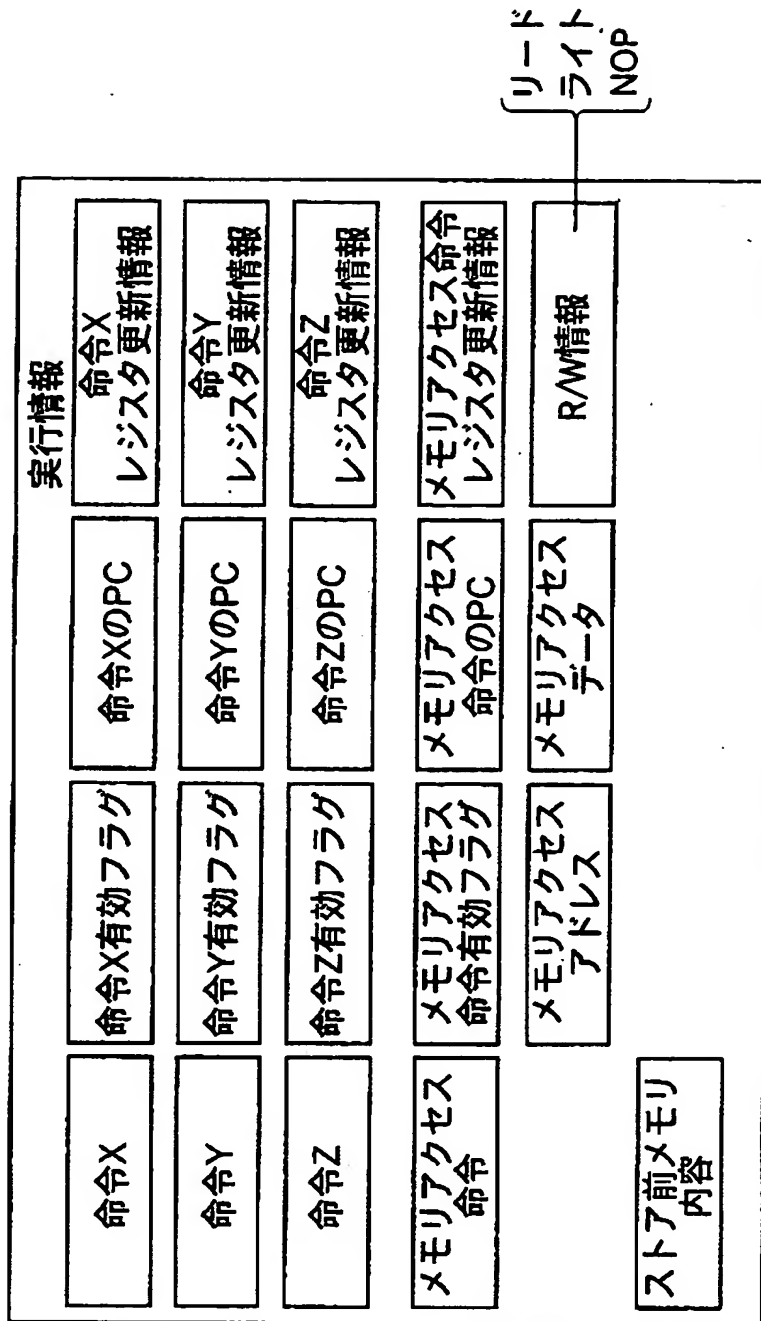 実行情報
命令X
命令X有効フラグ
命令XのPC
命令X
レジスタ更新情報
命令Y
命令Y有効フラグ
命令YのPC
命令Y
レジスタ更新情報
命令Z
命令Z有効フラグ
命令ZのPC
命令Z
レジスタ更新情報
メモリアクセス
命令
メモリアクセス
命令有効フラグ
メモリアクセス
命令のPC
メモリアクセス命令
レジスタ更新情報
メモリアクセス
アドレス
メモリアクセス
データ
R/W情報
リード
ライト
NOP
ストア前メモリ
内容